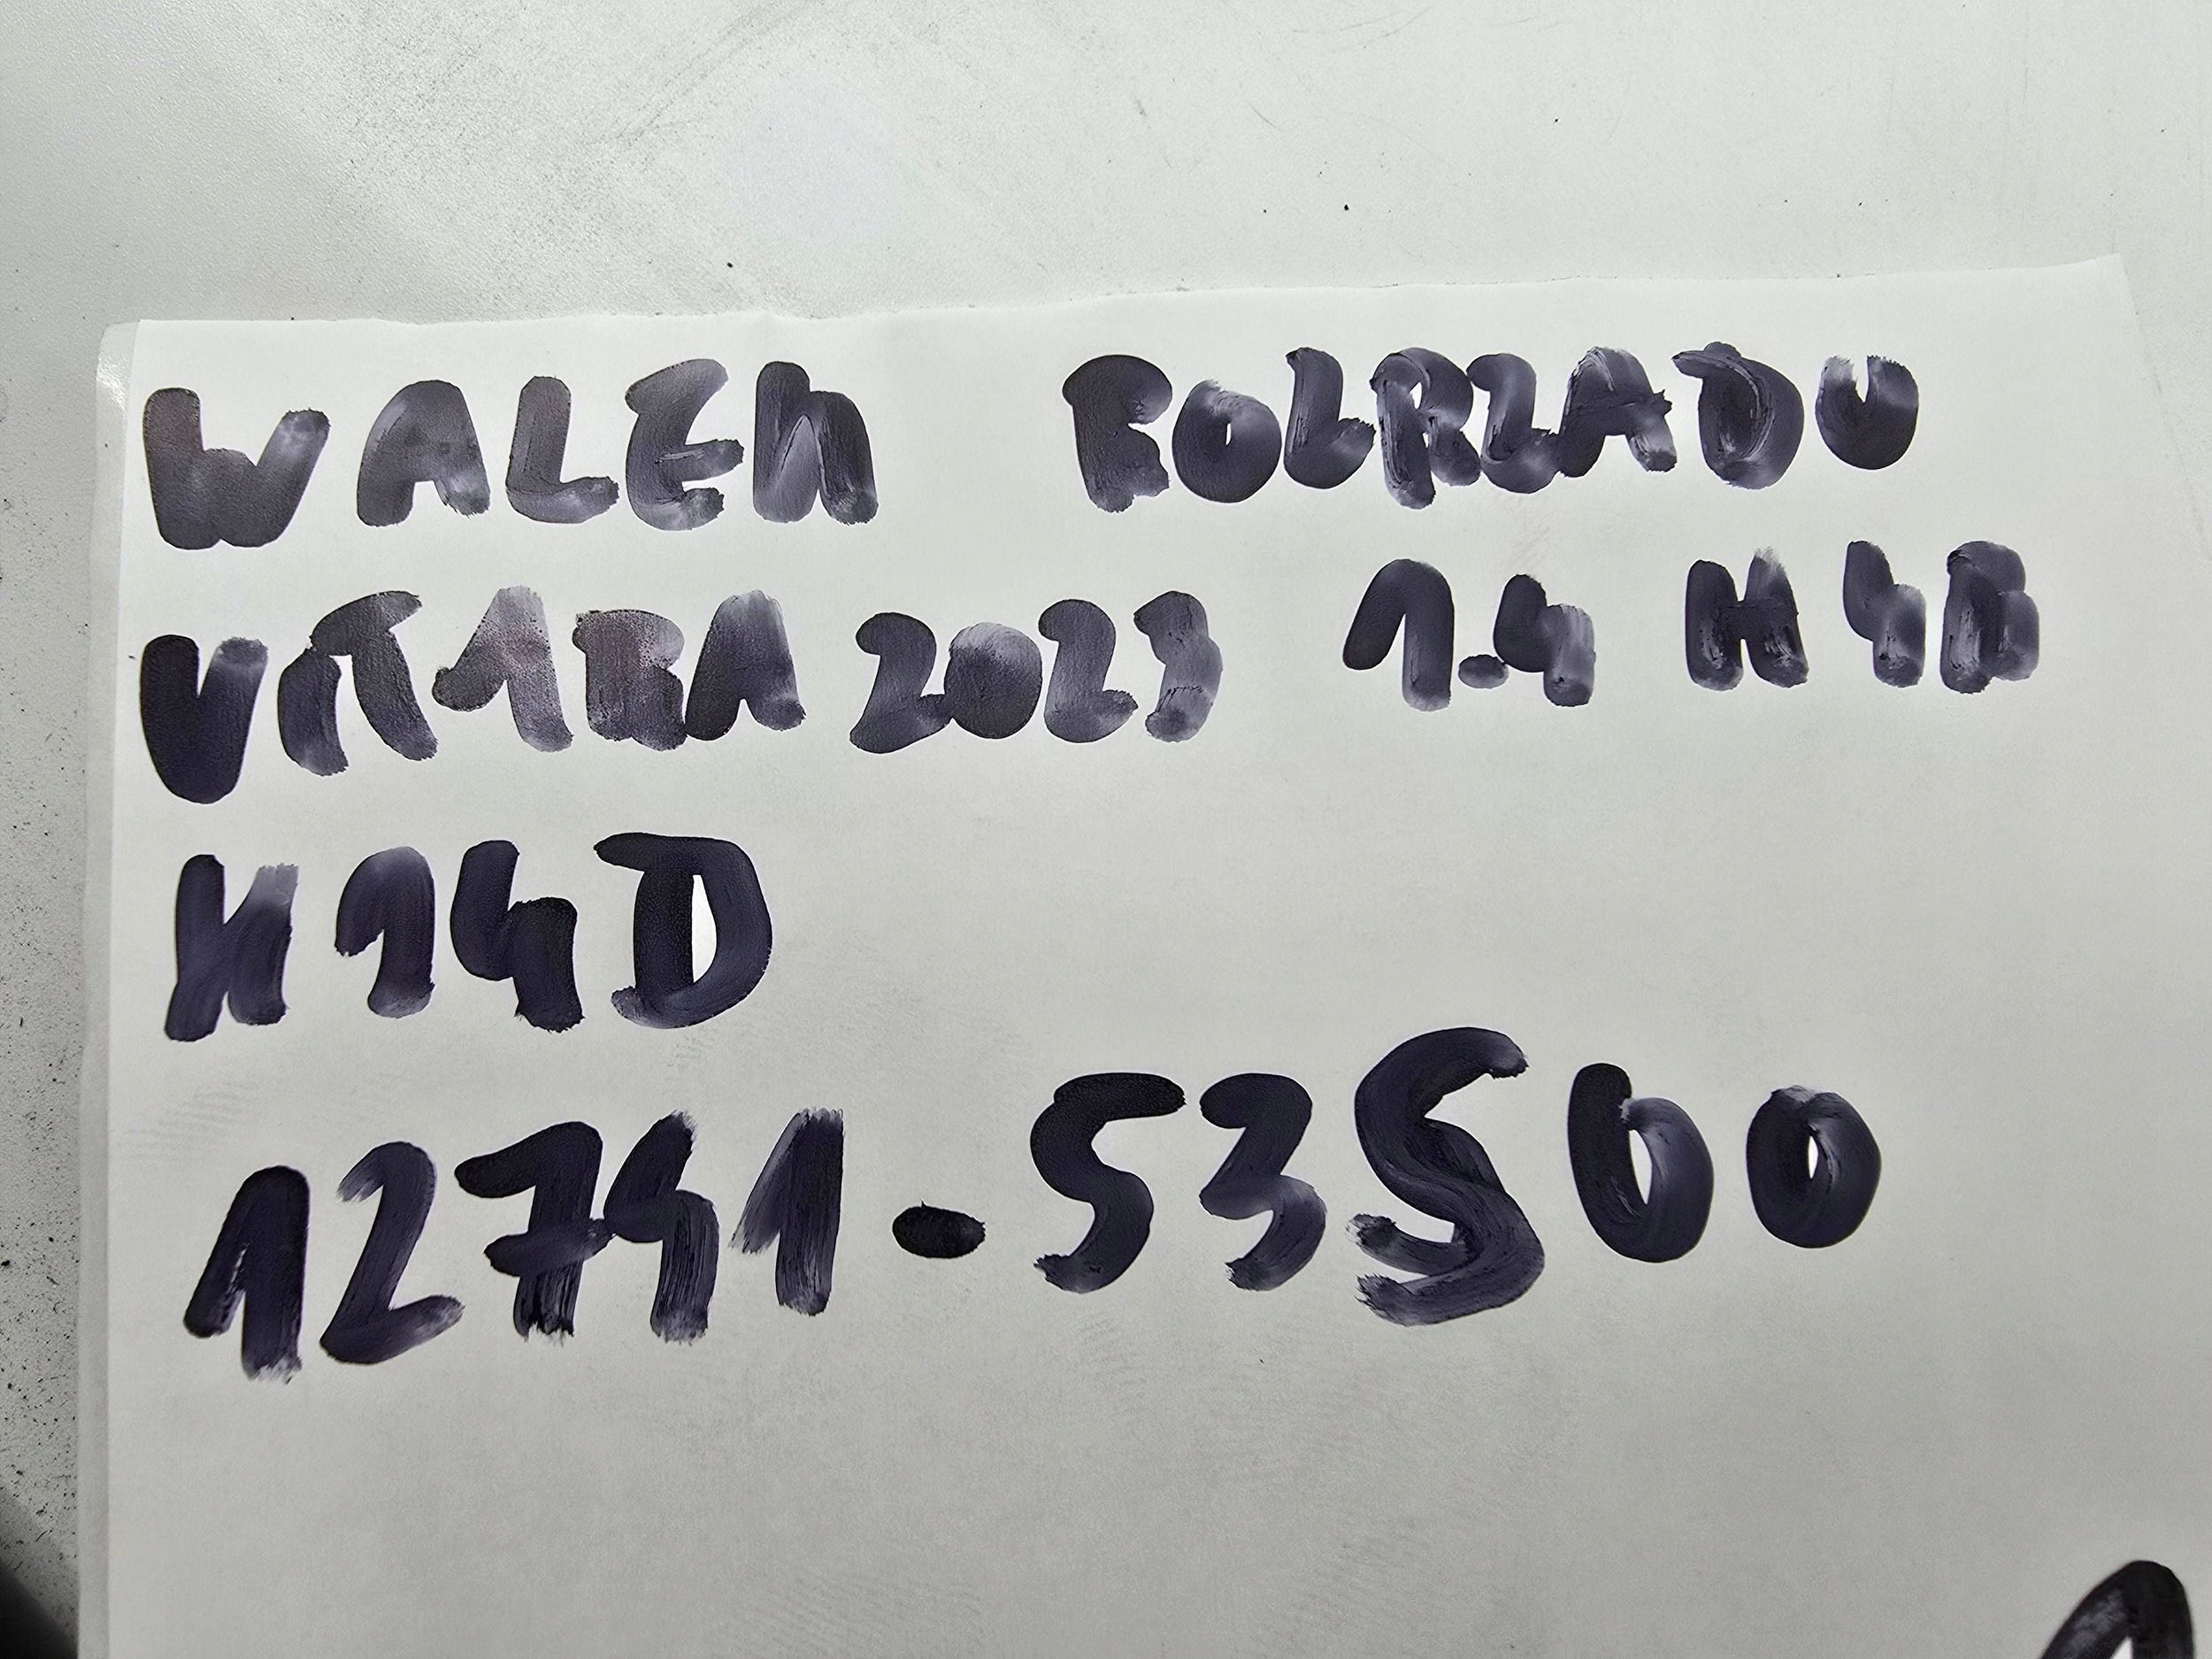 WALEK ROZRZADU
VITARA 2023 1.4 H48
K14D
12741-53S00